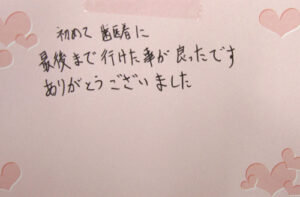 初めて 歯医者に
最後まで行けた事が良ったです
ありがとうございました